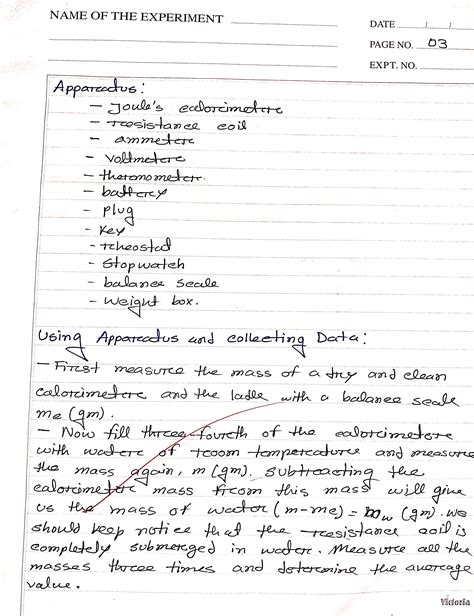 NAME OF THE EXPERIMENT
DATE / /
PAGE NO. 03
EXPT. NO.
Apparatus:
– Joule's calorimeter
– resistance coil
– ammeter
– voltmeter
– thermometer.
– battery
– plug
– Key
– rheostat
– Stopwatch
– balance scale
– weight box.
Using Apparatus and collecting Data:
– First measure the mass of a dry and clean
calorimeter and the ladle with a balance scale
me (gm).
– Now fill three-fourth of the calorimeter
with water of room temperature and measure
the mass again, m (gm). Subtracting the
calorimeter mass from this mass will give
us the mass of water (m-me) = mw (gm). we
should keep notice that the resistance coil is
completely submerged in water. Measure all the
masses three times and determine the average
value.
Victoria